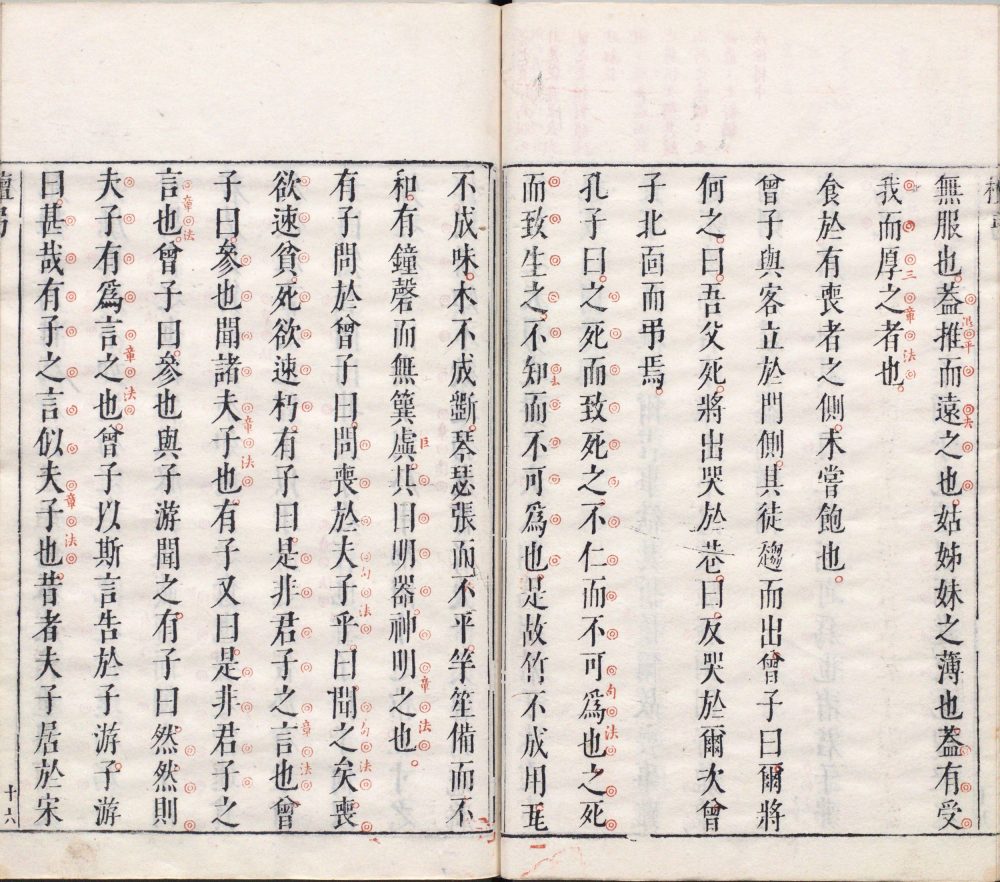 無服也蓋推而遠之也姑姊妹之薄也蓋有受
我而厚之者也
食於有喪者之側未嘗飽也
曾子與客立於門側其徒趨而出曾子曰爾將
何之曰吾父死將出哭於巷曰反哭於爾次曾
子北面而弔焉
孔子曰之死而致死之不仁而不可為也之死
而致生之不知而不可為也是故竹不成用瓦
不成味木不成斲琴瑟張而不平竽笙備而不
和有鐘磬而無簨虡其曰明器神明之也
有子問於曾子曰問喪於夫子乎曰聞之矣喪
欲速貧死欲速朽有子曰是非君子之言也曾
子曰參也聞諸夫子也有子又曰是非君子之
言也曾子曰參也與子游聞之有子曰然然則
夫子有為言之也曾子以斯言告於子游子游
曰甚哉有子之言似夫子也昔者夫子居於宋
檀弓
十六
平
去
三章法
句法
去
巨
章法
句法
句法
章法
章法
章法
章法
章法